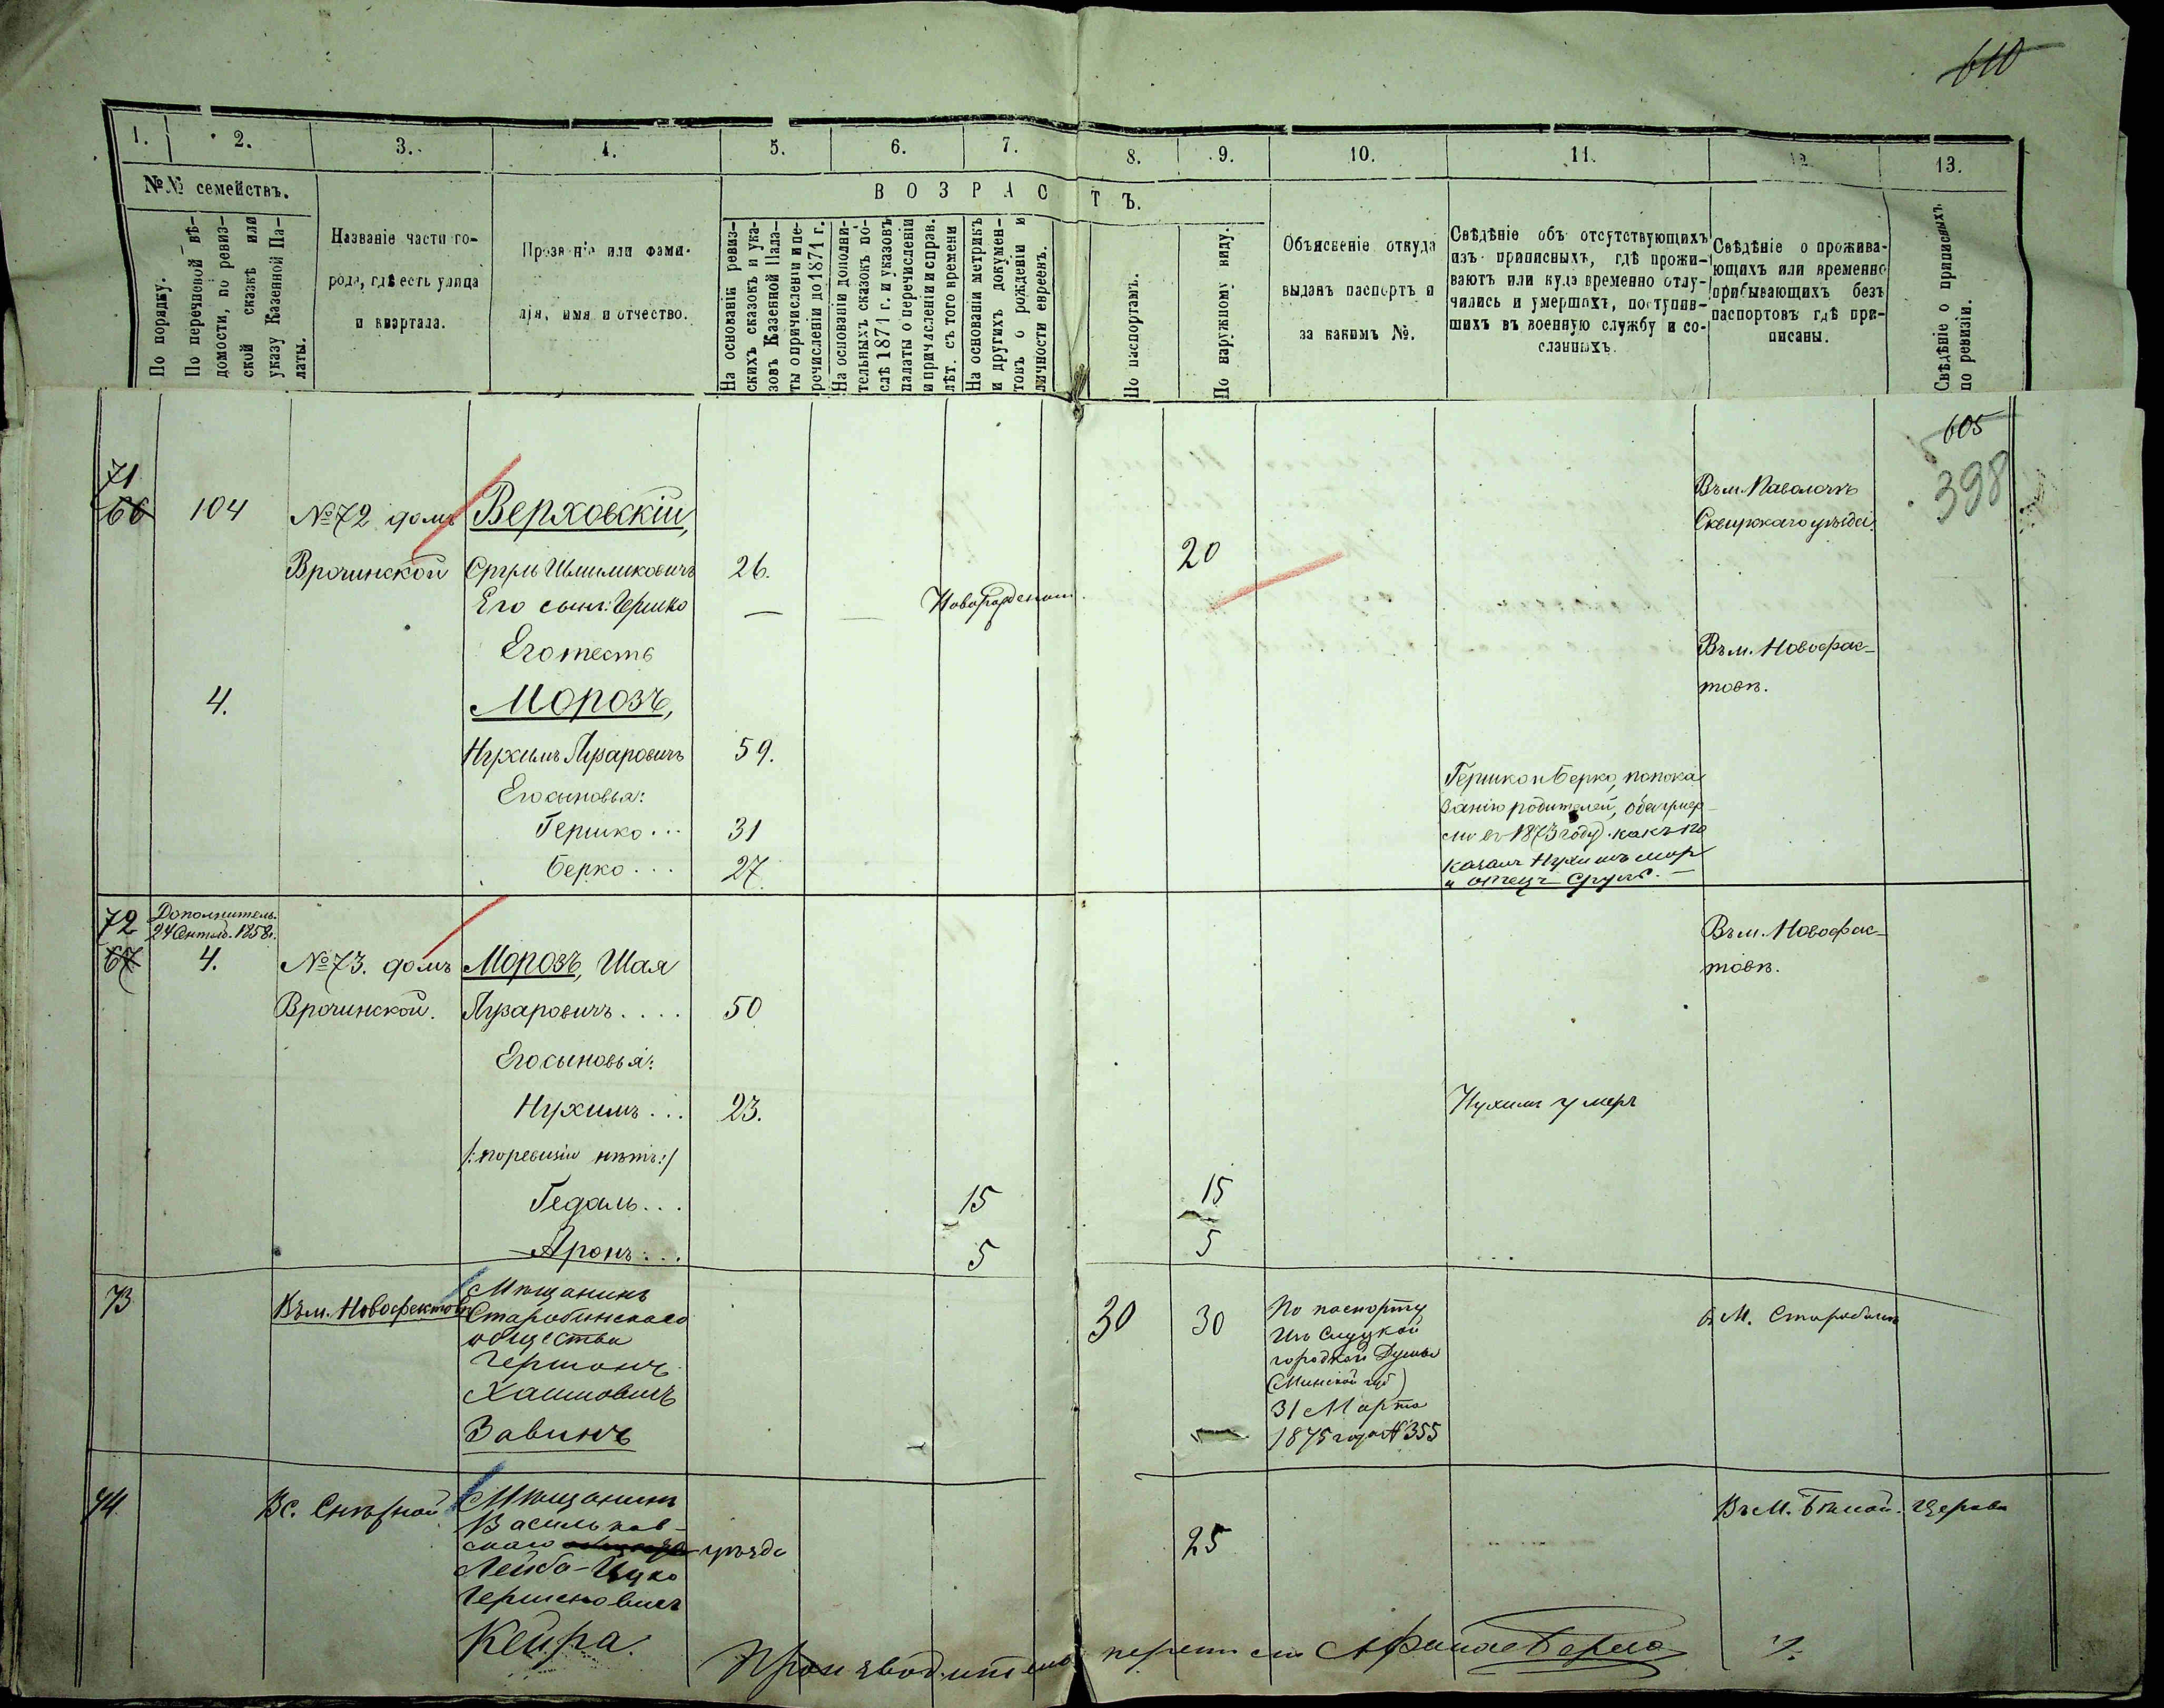 610
1. 2. 3. 4. 5. 6. 7. 8. 9. 10. 11. 12. 13.
№№ семействъ.
В О З Р А С Т Ъ.
По порядку.
По перечневой вѣ-
домости, по ревиз-
ской сказкѣ или
указу Казенной Па-
латы.
Названіе части го-
рода, гдѣ есть улица
и квартала.
Прозваніе или фами-
лія, имя и отчество.
На основаніи ревиз-
скихъ сказокъ и ука-
зовъ Казенной Пала-
ты о причисленіи и пе-
речисленіи до 1871 г.
На основаніи дополни-
тельныхъ сказокъ по-
слѣ 1871 г. и указовъ
палаты о перечисленіи
и причисленіи и справ.
лѣт. съ того времени
На основаніи метрикъ
и другихъ докумен-
товъ о рожденіи и
личности евреевъ.
По паспортамъ.
По наружному виду.
Объясненіе откуда
выданъ паспортъ и
за какимъ №.
Свѣдѣніе объ отсутствующихъ
изъ приписныхъ, гдѣ прожи-
ваютъ или куда временно отлу-
чились и умершихъ, поступив-
шихъ въ военную службу и со-
сланныхъ.
Свѣдѣніе о прожива-
ющихъ или временно
прибывающихъ безъ
паспортовъ гдѣ при-
писаны.
Свѣдѣніе о приписныхъ
по ревизіи.
605
398
71
66
104
№72 домъ
Врочинской
Верховскій,
Сруль Шмиликовичъ 26. 20
Его сынъ: Гершко — Новорожденный
Въ м. Паволочи
Сквирскаго уѣзда.
Его тесть
4.
Морозъ,
Въ м. Новофас-
товѣ.
Нухимъ Лузаровичъ 59.
Его сыновья:
Гершко... 31
Берко... 27
Гершко и Берко, по пока
занію родителей, оба умер-
ли въ 1873 году. какъ по
казали Нухимъ мор
и отецъ Сруль. —
72
67
Дополнитель.
24 Сентяб. 1858г.
4.
№73. домъ
Врочинской.
Морозъ, Шая
Лузаровичъ.... 50
Въ м. Новофас-
товѣ.
Его сыновья:
Нухимъ... 23. Нухимъ умеръ
/:по ревизіи нѣтъ:/
Гедаль... 15 15
Аронъ... 5 5
73
Въ м. Новофастовѣ
Мѣщанинъ
Старобинскаго
общества
Гершонъ
Хаимовичъ
Завинъ
30 30
По паспорту
Изъ Слуцкой
городской Думы
(Минской губ)
31 Марта
1875 года №355
в М. Старобинѣ
74
Мѣщанинъ
Васильков-
скаго уѣзда
Лейба-Ицко
Гершковичъ
Кейра.
25
Въ М. Бѣлой-Церкви
Производитель переписи